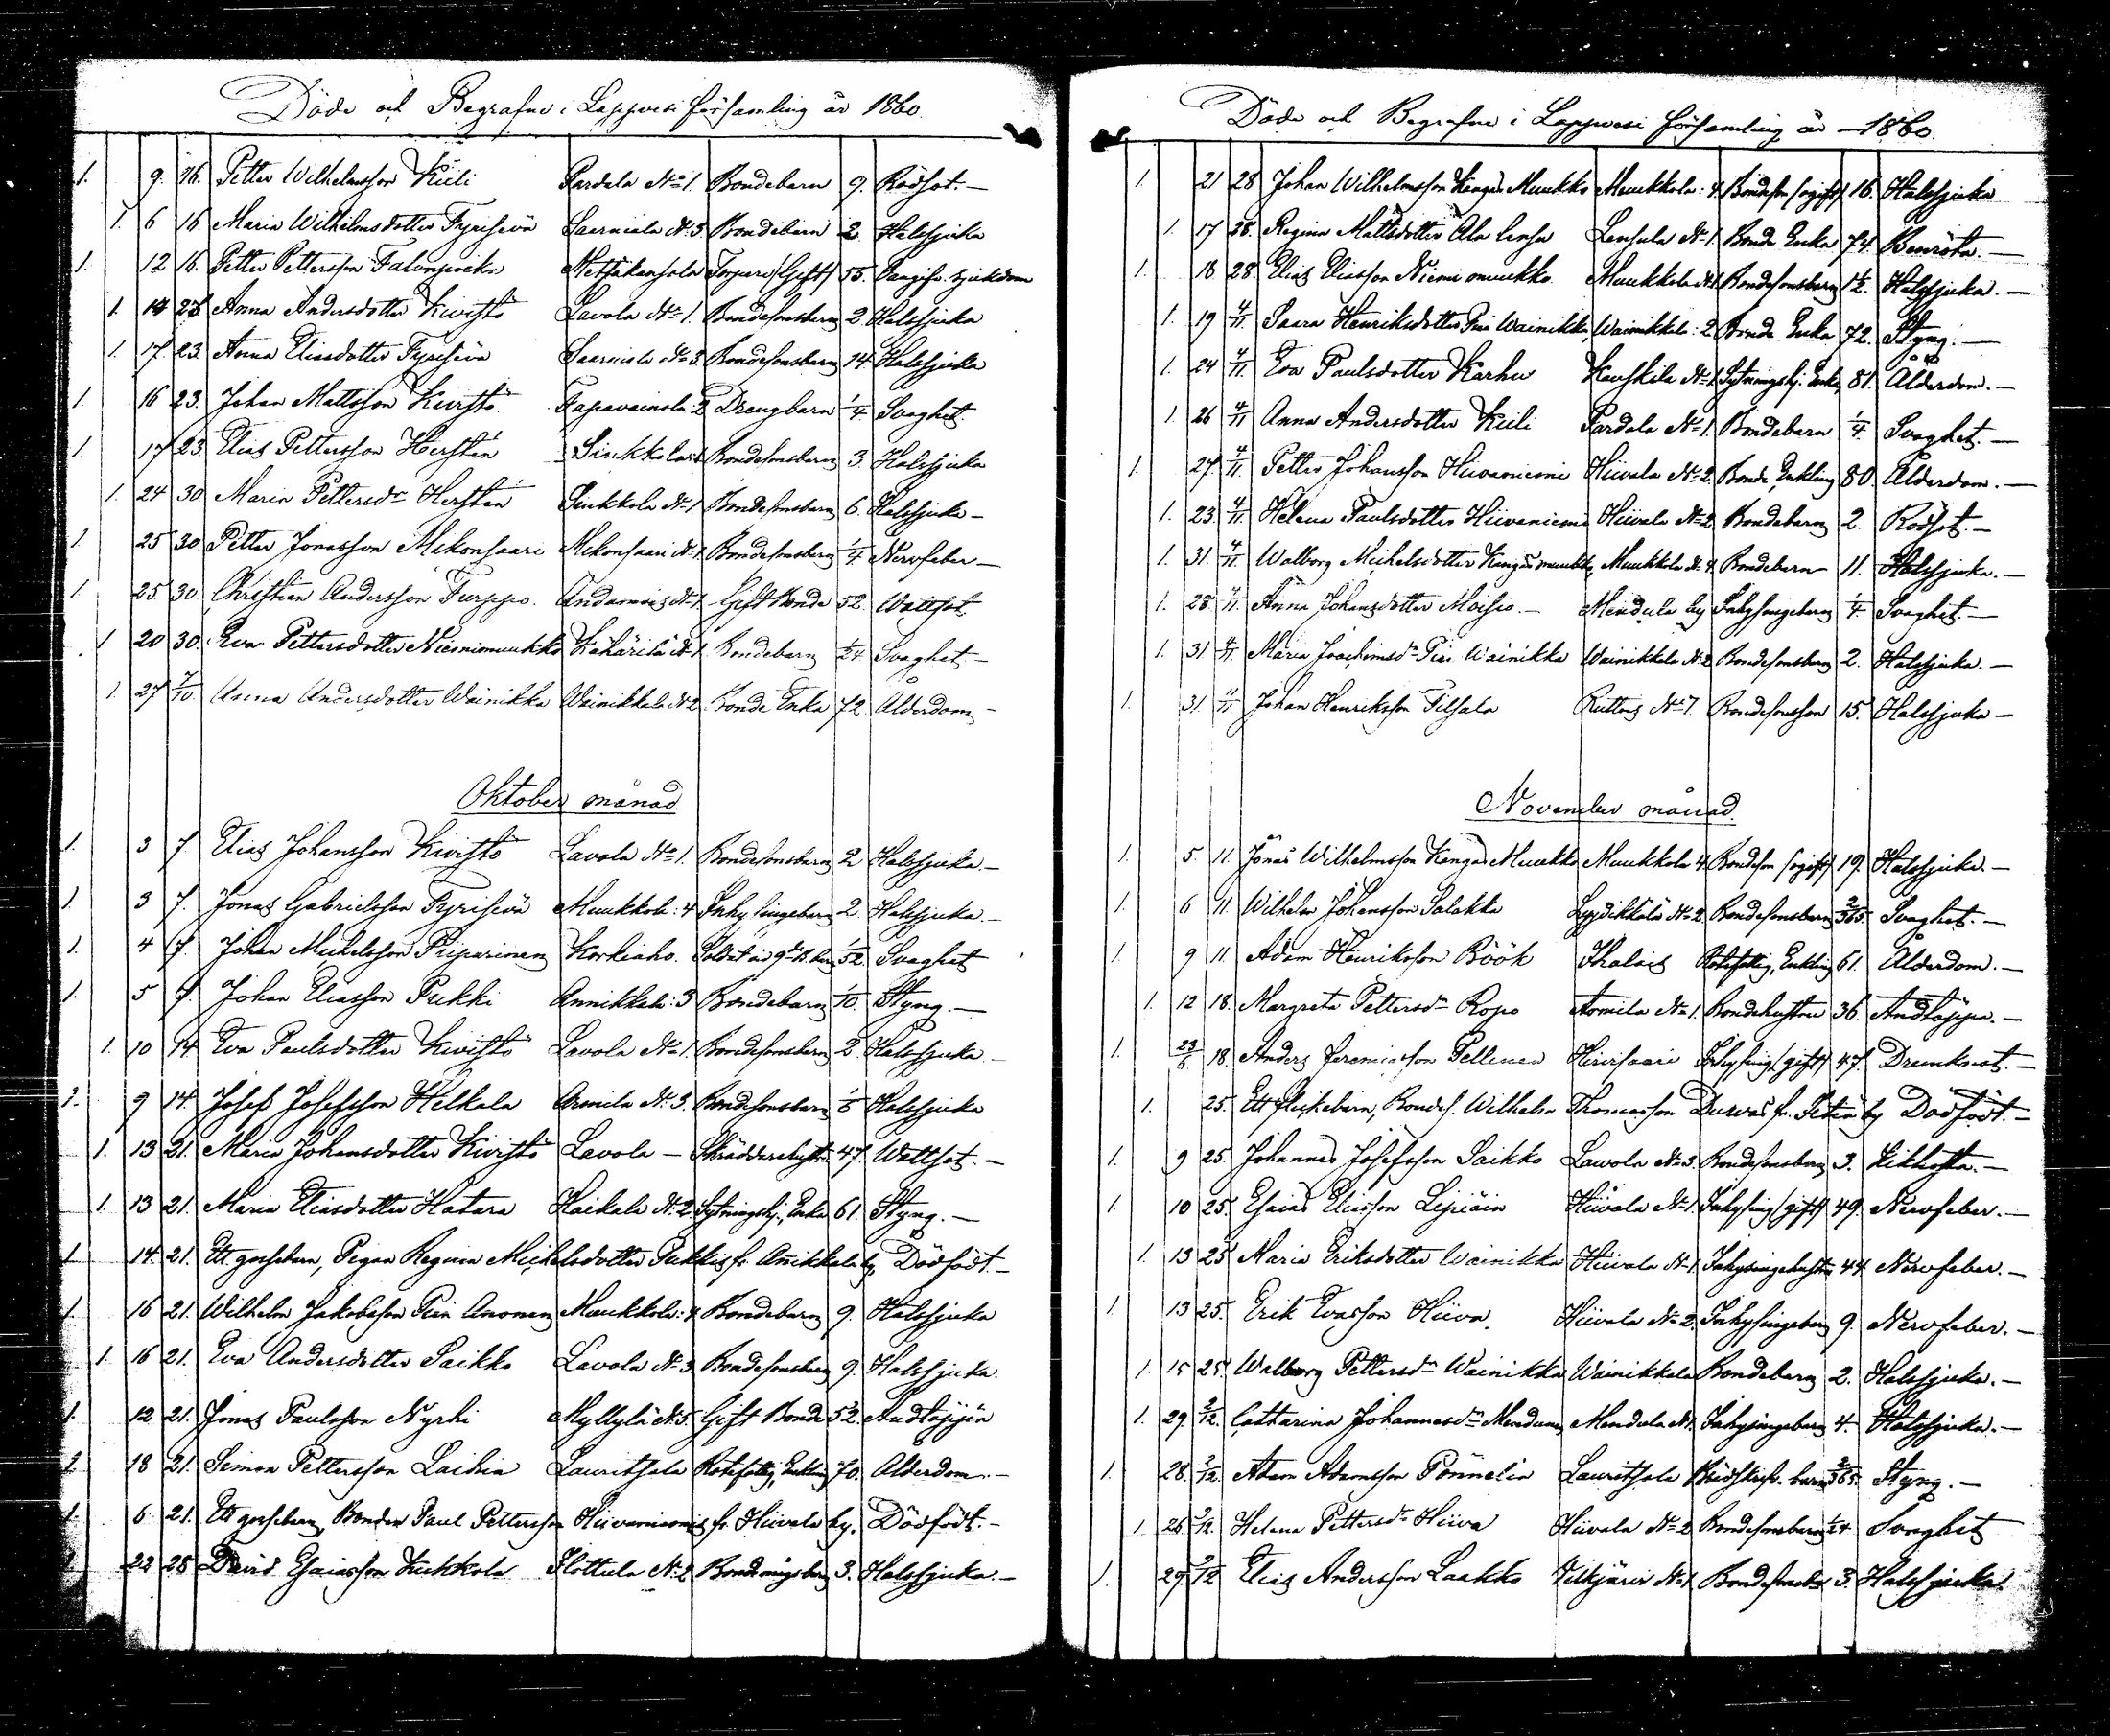 Döde och Begrafne i Lappvesi församling år 1860.
1. 9. 16. Petter Wilhelmsson Kiili Pardala No 1. Bondebarn 9. Rödsot. —
1. 6 16. Maria Wilhelmsdotter Tyrisevä No 3. Bondebarn 2 Halssjuka
1. 12 16. Petter Pettersson Metsäkansola (Gift) 55. sjukdom
1. 14 23 Anna Andersdotter Kivistö Lavola No 1. Bondesonsbarn 2 Halssjuka
1. 17. 23. Anna Eliasdotter Tyrisevä No 3 Bondesonsbarn 14. Halssjuka
1. 16 23. Johan Mattsson Kivistö Tapavainola: 2 Drengbarn 1/4 Svaghet.
1. 17 23. Elias Pettersson Herstén Sinkkola: 1 Bondesonsbarn 3. Halssjuka
1. 24 30 Maria Pettersdr Herstén Sinkkola No 1. Bondesonsbarn 6. Halssjuka —
1. 25 30. Petter Jonasson Mikonsaari Mikonsaari No 1. Bondesonsbarn 1/4 Nervfeber —
1. 25. 30 Christian Andersson Turppo. No 1. Gift Bonde 52. Wattsot
1. 20 30. Eva Pettersdotter Niemimuukko Kähärilä No 1. Bondebarn 1/24 Svaghet. —
1. 27 7/10. Anna Andersdotter Wainikka Wainikkala No 2 Bonde Enka 72. Ålderdom —
Oktober månad.
1. 3 7. Elias Johansson Kivistö Lavola No 1. Bondesonsbarn 2 Halssjuka. —
1. 3 7. Jonas Gabrielsson Tyrisevä Muukkola: 4 Inhysingebarn 2 Halssjuka. —
1. 4 7. Johan Michelsson Piiparinen Korkiaho. 1/52. Svaghet
1. 5 7. Johan Eliasson Pukki Annikkala: 3 Bondebarn 1/10. Styng. —
1. 10 14 Eva Paulsdotter Kivistö Lavola No 1. Bondesonsbarn 2. Halssjuka. —
1. 9 14. Josef Josefsson Helkala Armila No 3. Bondesonsbarn Halssjuka
1. 13 21. Maria Johansdotter Kivistö Lavola — Skräddarehustru 47. Wattsot. —
1. 13 21. Maria Eliasdotter Hatara Haikala No 2 Sytningshj. Enka 61. Styng. —
1. 14. 21. Ett gossebarn, Pigan Regina Michelsdotter Pukkis fr. Annikkala by, Dödfödt. —
1. 16 21. Wilhelm Jakobsson Pien Anonen Muukkola: 4 Bondebarn 9. Halssjuka
1. 16 21. Eva Andersdotter Saikko Lavola No 3. Bondesonsbarn 9. Halssjuka.
1. 12 21. Jonas Paulsson Nyrhi Myllylä No 5. Gift Bonde 52. Andtäppa
1 18 21. Simon Pettersson Laihia Lauritsala Rotefattig, Enkling 70. Ålderdom. —
1. 6. 21. Ett gossebarn, Bonden Paul Pettersson Hiivaniemis fr. Hiivala by. Dödfödt. —
1. 22 28 David Esaiasson Kukkola No 2 3. Halssjuka. —
Döde och Begrafne i Lappvesi församling år 1860.
1. 21 28 Johan Wilhelmsson Kangas Muukko Muukkola: 4. Bondeson (ogift) 16. Halssjuka
1. 17 28. Regina Mattsdotter Ala Lensu Lensula No 1. Bonde Enka 74. Benröta. —
1. 18 28. Elias Eliasson Niemi muukko. Muukkola No 1. Bondesonsbarn 1 1/2. Halssjuka. —
1. 19 4/11. Saara Henriksdotter Pien Wainikka, Wainikkala: 2 Bonde Enka 72. Styng. —
1. 24 4/11. Eva Paulsdotter Karhu Kauskila No 1. Sytningshj. Enka, 81. Ålderdom. —
1. 26 4/11 Anna Andersdotter Kiili Pardala No 1. Bondebarn 1/4. Svaghet. —
1. 27. 4/11. Petter Johansson Hiivaniemi Hiivala No 2. Bonde, Enkling 80. Ålderdom. —
1. 23. 4/11. Helena Paulsdotter Hiivaniemi Hiivala No 2 Bondebarn 2. Rödsot. —
1. 31. 4/11. Walborg Michelsdotter Kangasmuukko, Muukkola No 4. Bondebarn 11. Halssjuka. —
1. 28 4/11. Anna Johansdotter Moisio. — Mendula by Inhysingebarn 1/4. Svaghet. —
1. 31 4/11. Maria Joachimsdr Pien Wainikka Wainikkala No 2 Bondesonsbarn 2. Halssjuka. —
1. 31. 11/11 Johan Henriksson Tilsala Ruttons No 7. Bondesonsson 15. Halssjuka —
November månad.
1. 5. 11. Jonas Wilhelmsson Kangas Muukko Muukkola 4. Bondeson (ogift) 19. Halssjuka. —
1. 6 11. Wilhelm Johansson Salakka No 2. Bondesonsbarn 2/365. Svaghet. —
1. 9 11. Adam Henriksson Böök Ihalais Rotefattig, Enkling 61. Ålderdom. —
1. 12 18. Margreta Pettersdr Ropo Armila No 1. Bondehustru 36. Andtäppa. —
1. 18. Anders Jeremiasson Pellinen Hirvisaari Inhysing (gift) 47. Drunknat. —
1. 25. Ett flickebarn, Bondes. Wilhelm Thomasson fr. by Dödfödt. —
1. 9 25. Johannes Josefsson Saikko Lavola No 3. Bondesonsbarn, 3. Kikhosta. —
1. 10 25. Esaias Eliasson Lipiäin Hiivala No 1. Inhysing (gift) 49. Nervfeber. —
1. 13 25 Maria Eriksdotter Wainikka Hiivala No 1. Inhysingehustru 44 Nervfeber. —
1. 13 25. Erik Evasson Hiiva. Hiivala No 2. Inhysingebarn 9. Nervfeber. —
1. 15 25. Walborg Pettersdr Wainikka Wainikkala Bondebarn 2. Halssjuka. —
1. 29. 2/12. Catharina Johannesdr Mendunen Mendula No 1. Inhysingebarn 4. Halssjuka. —
1. 28. 2/12. Adam Adamsson Pönnelin Lauritsala barn 2/365. Styng. —
1. 26 2/12. Helena Pettersdr Hiiva Hiivala No 2 Bondesonsbarn 1/24 Svaghet
1. 29. 2/12 Elias Andersson Laakko Vilkjärvi No 1 3. Halssjuka.